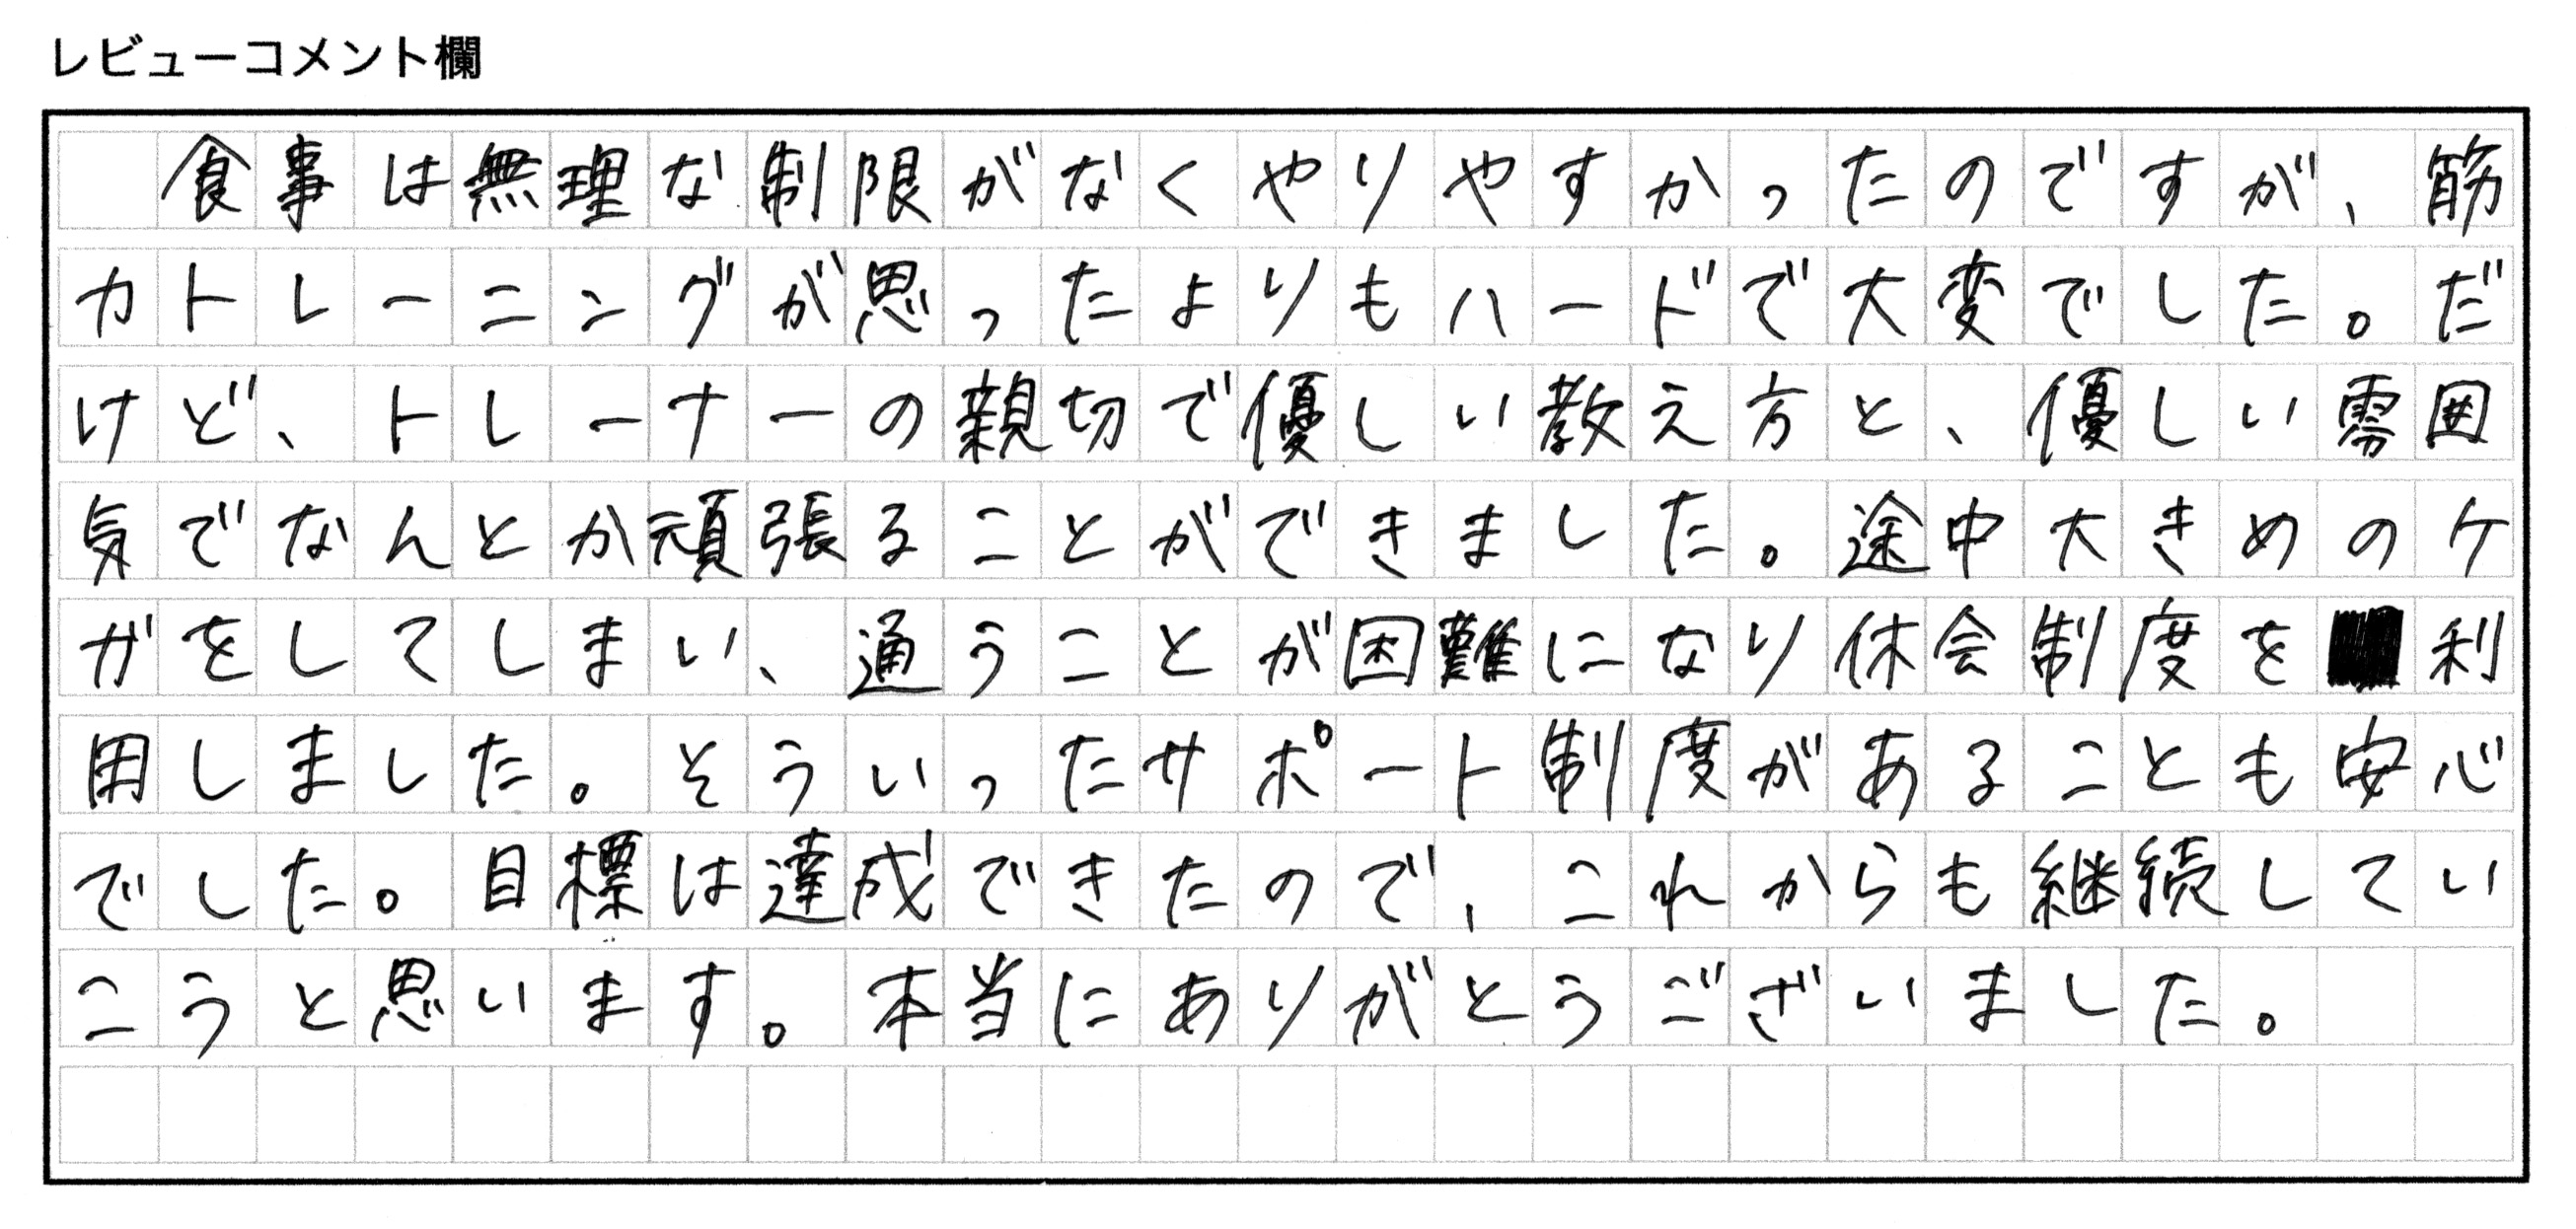 レビューコメント欄
　食事は無理な制限がなくやりやすかったのですが、筋
力トレーニングが思ったよりもハードで大変でした。だ
けど、トレーナーの親切で優しい教え方と、優しい雰囲
気でなんとか頑張ることができました。途中大きめのケ
ガをしてしまい、通うことが困難になり休会制度を利
用しました。そういったサポート制度があることも安心
でした。目標は達成できたので、これからも継続してい
こうと思います。本当にありがとうございました。